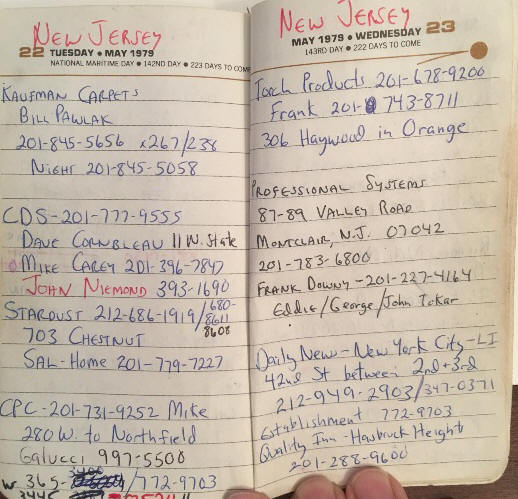 NEW JERSEY
22 TUESDAY • MAY 1979
NATIONAL MARITIME DAY • 142ND DAY • 223 DAYS TO COME
KAUFMAN CARPETS
BILL PAWLAK
201-845-5656 x267/238
NIGHT 201-845-5058
CDS-201-777-9555
DAVE CORNBLEAU 11 W. State
MIKE CAREY 201-396-7847
JOHN NIEMOND 393-1690
STARDUST 212-686-1919/680-
8611
8608
703 CHESTNUT
SAL-Home 201-779-7227
CPC-201-731-9252 Mike
280 W. to Northfield
Galucci 997-5500
W 365- /772-9703
NEW JERSEY
MAY 1979 • WEDNESDAY 23
143RD DAY • 222 DAYS TO COME
Torch Products 201-678-9200
Frank 201-743-8711
306 Haywood in Orange
PROFESSIONAL SYSTEMS
87-89 VALLEY ROAD
MONTCLAIR, N.J. 07042
201-783-6800
FRANK DOWNY-201-227-4164
Eddie/George/John Tokar
Daily News-New York City-LI
42nd St between 2nd+3rd
212-949-2903/347-0371
Establishment 772-9703
Quality Inn-Hasbrouck Heights
201-288-9600